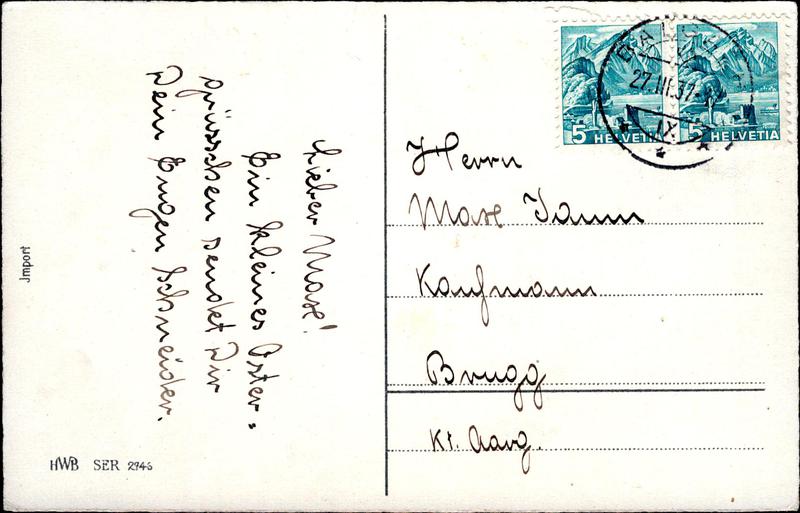 Lieber Max!
Ein kleines Oster=
grüsschen sendet Dir
Dein Eugen Schneider.
Herrn
Max Jann
Kaufmann
Brugg
Kt. Aarg.
5 HELVETIA
5 HELVETIA
27.III.37
IX
Jmport
HWB SER 2746